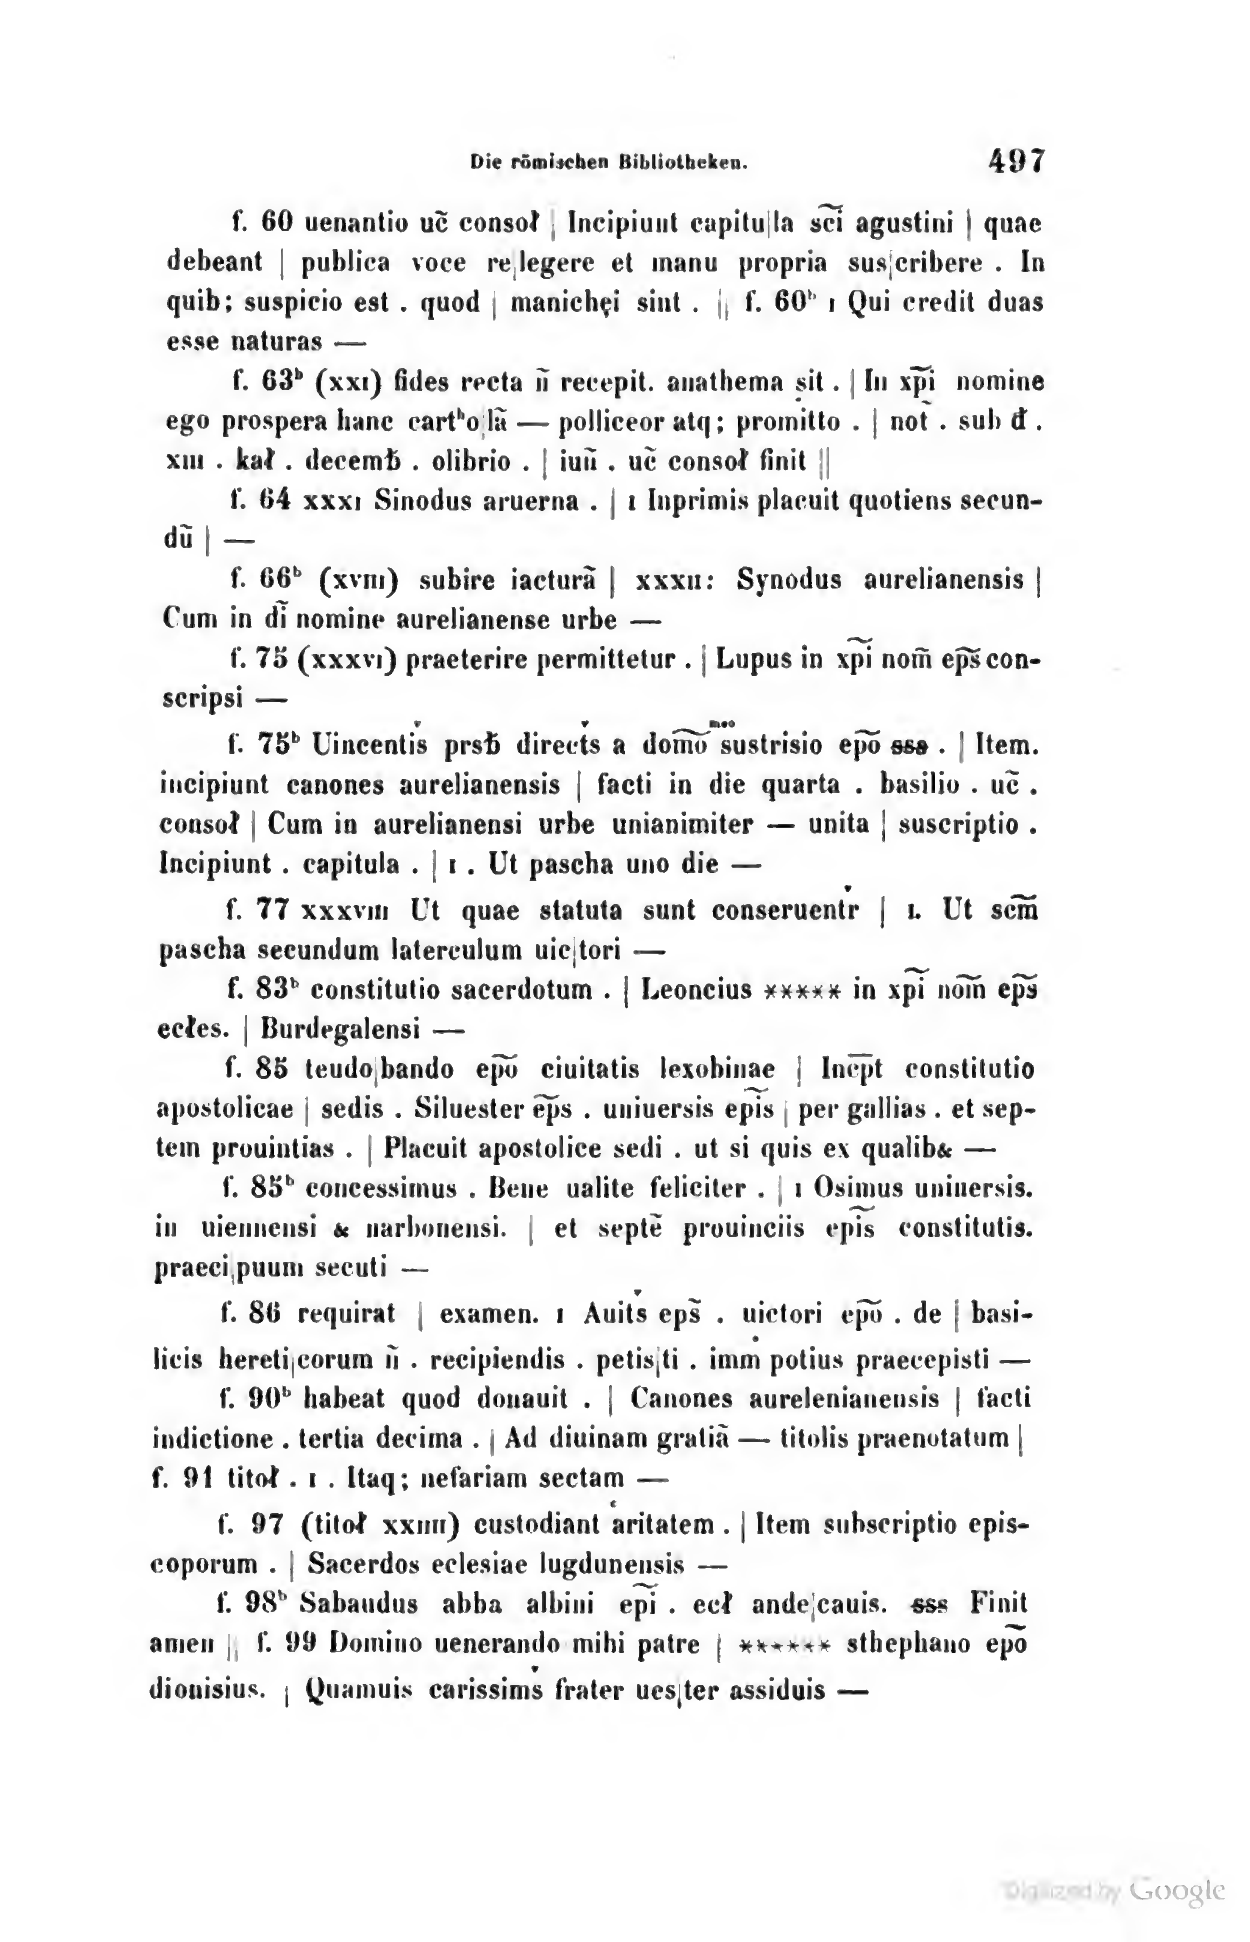 Die römischen Bibliotheken. 497
f. 60 uenantio uc̃ consoł | Incipiunt capitu|la sc͠i agustini | quae
debeant | publica voce re|legere et manu propria sus|cribere . In
quib; suspicio est . quod | manichęi sint . || f. 60ᵇ ı Qui credit duas
esse naturas —
f. 63ᵇ (xxı) fides recta n̄ recepit. anathema sit . | In xp͠i nomine
ego prospera hanc cartʰo|lã — polliceor atq; promitto . | not̃ . sub đ .
xııı . kał . decemƀ . olibrio . | iuñ . uc̃ consoł finit ||
f. 64 xxxı Sinodus aruerna . | ı Inprimis placuit quotiens secun-
dũ | —
f. 66ᵇ (xvııı) subire iacturã | xxxıı: Synodus aurelianensis |
Cum in dĩ nomine aurelianense urbe —
f. 75 (xxxvı) praeterire permittetur . | Lupus in xp͠i nom̃ ep͠s con-
scripsi —
f. 75ᵇ Uincentis prsƀ directs a dom͠o sustrisio ep͠o sss . | Item.
incipiunt canones aurelianensis | facti in die quarta . basilio . uc̃ .
consoł | Cum in aurelianensi urbe unianimiter — unita | suscriptio .
Incipiunt . capitula . | ı . Ut pascha uno die —
f. 77 xxxvııı Ut quae statuta sunt conseruentr | ı. Ut sc͠m
pascha secundum laterculum uic|tori —
f. 83ᵇ constitutio sacerdotum . | Leoncius ***** in xp͠i no͠m ep͠s
ecłes. | Burdegalensi —
f. 85 teudo|bando ep͠o ciuitatis lexobinae | Inc͞pt constitutio
apostolicae | sedis . Siluester ep͠s . uniuersis ep͠is | per gallias . et sep-
tem prouintias . | Placuit apostolice sedi . ut si quis ex qualib& —
f. 85ᵇ concessimus . Bene ualite feliciter . | ı Osimus uniuersis.
in uiennensi & narbonensi. | et septẽ prouinciis ep͠is constitutis.
praeci|puum secuti —
f. 86 requirat | examen. ı Auits eps̃ . uictori ep͠o . de | basi-
licis hereti|corum n̄ . recipiendis . petis|ti . imm potius praecepisti —
f. 90ᵇ habeat quod donauit . | Canones aurelenianensis | facti
indictione . tertia decima . | Ad diuinam gratiã — titolis praenotatum |
f. 91 titoł . ı . Itaq; nefariam sectam —
f. 97 (titoł xxıııı) custodiant aritatem . | Item subscriptio epis-
coporum . | Sacerdos eclesiae lugdunensis —
f. 98ᵇ Sabaudus abba albini ep͠i . ecł ande|cauis. sss Finit
amen || f. 99 Domino uenerando mihi patre | ****** sthephano ep͠o
dionisius. | Quamuis carissims frater ues|ter assiduis —
Digitized by Google